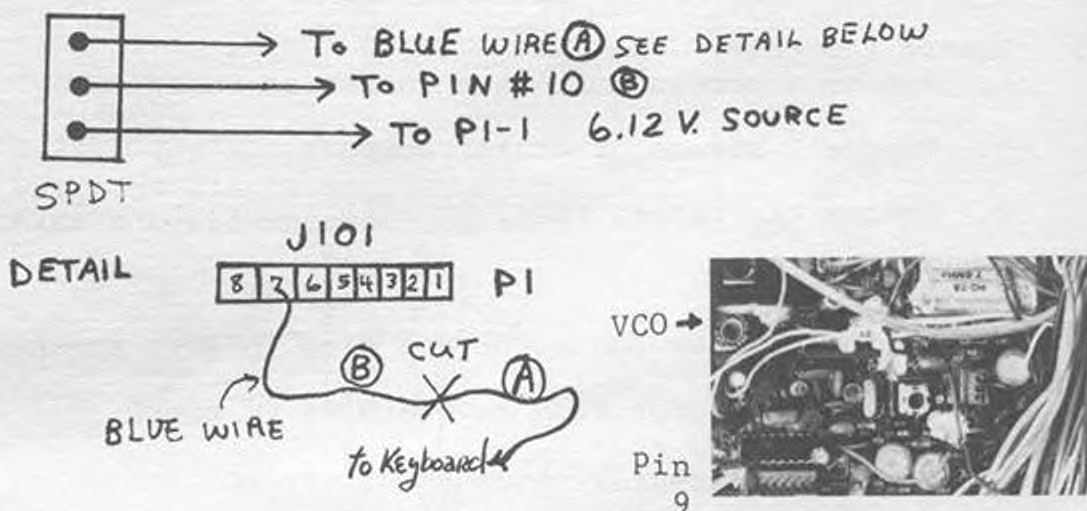 To BLUE WIRE Ⓐ SEE DETAIL BELOW
To PIN # 10 Ⓑ
To P1-1 6.12 V. SOURCE
SPDT
J101
DETAIL
8 7 6 5 4 3 2 1 P1
VCO
Ⓑ CUT Ⓐ
BLUE WIRE
to Keyboard
Pin
9